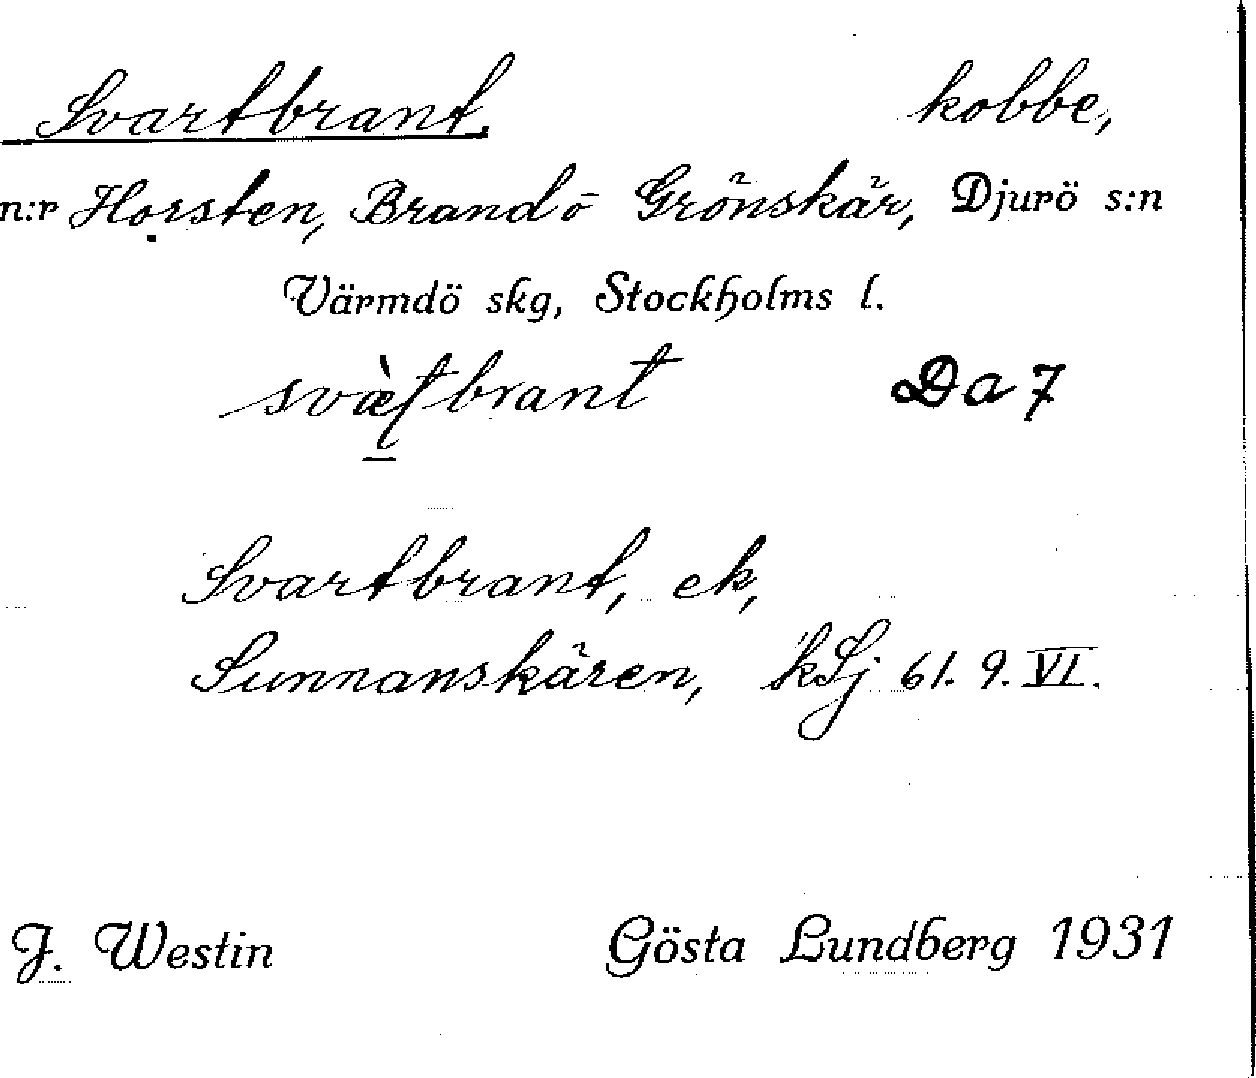 Svartbrant, kobbe,
n:r Horsten, Brandö Grönskär, Djurö s:n
Värmdö skg, Stockholms l.
Da 7
Svartbrant, ek,
Sunnanskären, kSj 61. 9. VI.
J. Westin Gösta Lundberg 1931